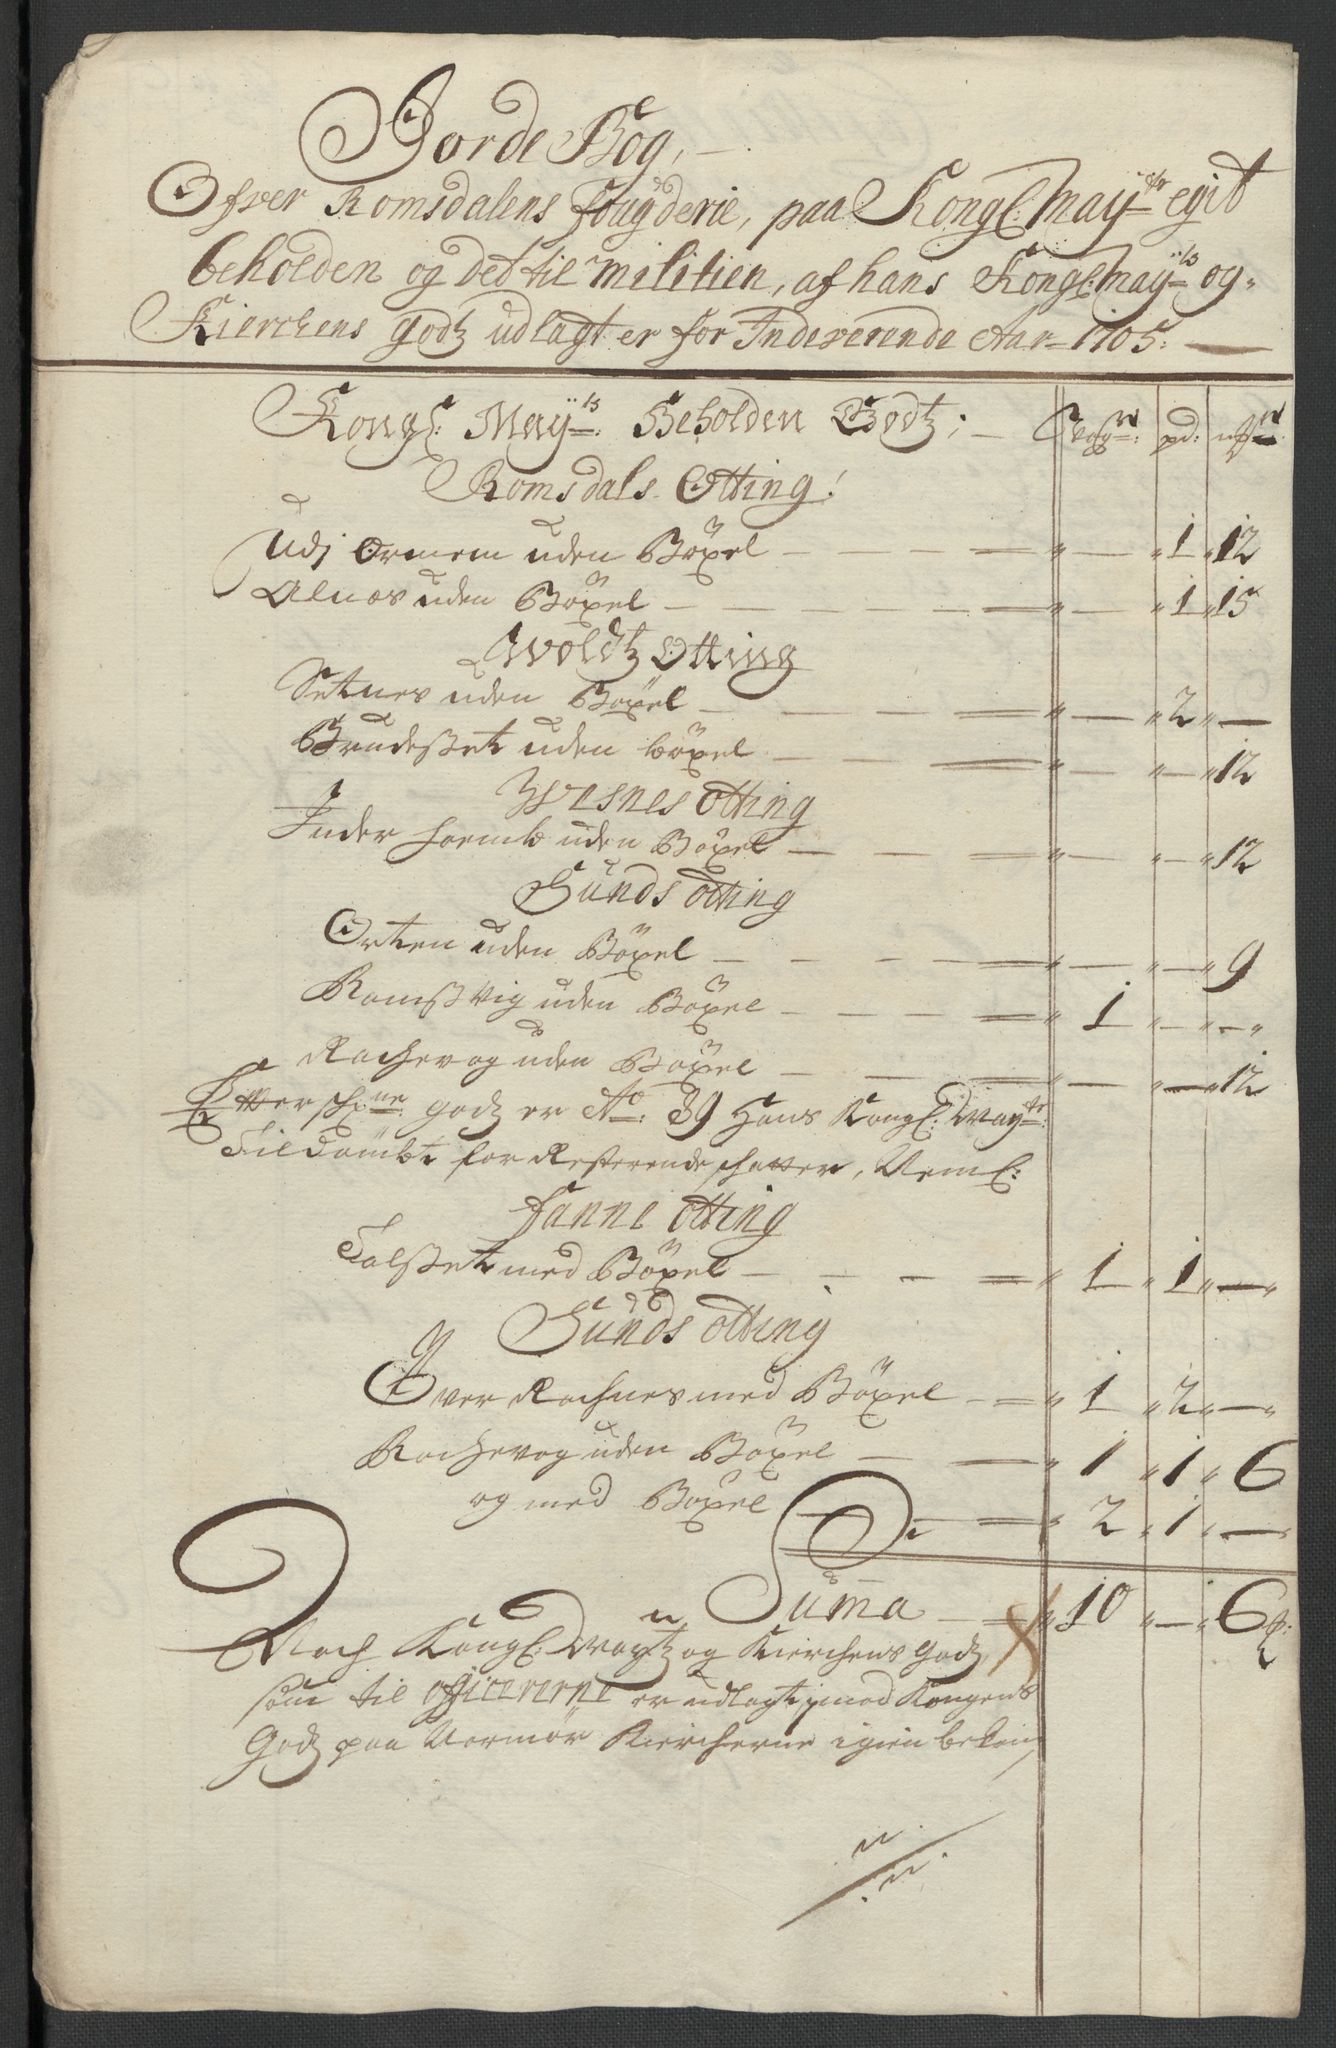 Jorde Bog,
Ofver Romsdalens fougderie, paa Kongl: Mayts egit
beholden og det til militien, af hans Kongl: Mayts og
Kierchens godtz udlagt er for Indeverende Aar 1705.
Kongl: Mayts: Beholden Godtz; Wogr: pd: mkr:
Romsdals Otting!
Udj Ormem uden Böxel — " — " 1 " 12
Alnæs uden Böxel — " — " 1 " 15
Woldtz Otting
Setnes uden Böxel — " — " 2 " —
Brudeset uden böxel — " — " — " 12
Wesnes Otting
Inder Harmb uden Böxel — " — " — " 12
Sunds Otting
Orten uden Böxel — " — " — " 9
Ramsvig uden Böxel — " 1 " — " —
Rachevog uden Böxel — " — " — " 12
Efterschr:ne: godtz er Ao: 89 Hans Kongl: Mayts:
Tildömbt for Resterende schatter, Neml:
Fanne Otting
Talset med Böxel — " 1 " 1 " —
Sunds Otting
Øver Rachnes med Böxel — " 1 " 2 " —
Rachevog uden Böxel — " 1 " 1 " 6
og med Böxel — " 2 " 1 " —
Suma — " 10 " — " 6
Noch Kongl: Maytz og Kierchens Godtz,
som til officererne er udlagt, imod Kongens
Godtz paa Normör Kiercherne igien bekom